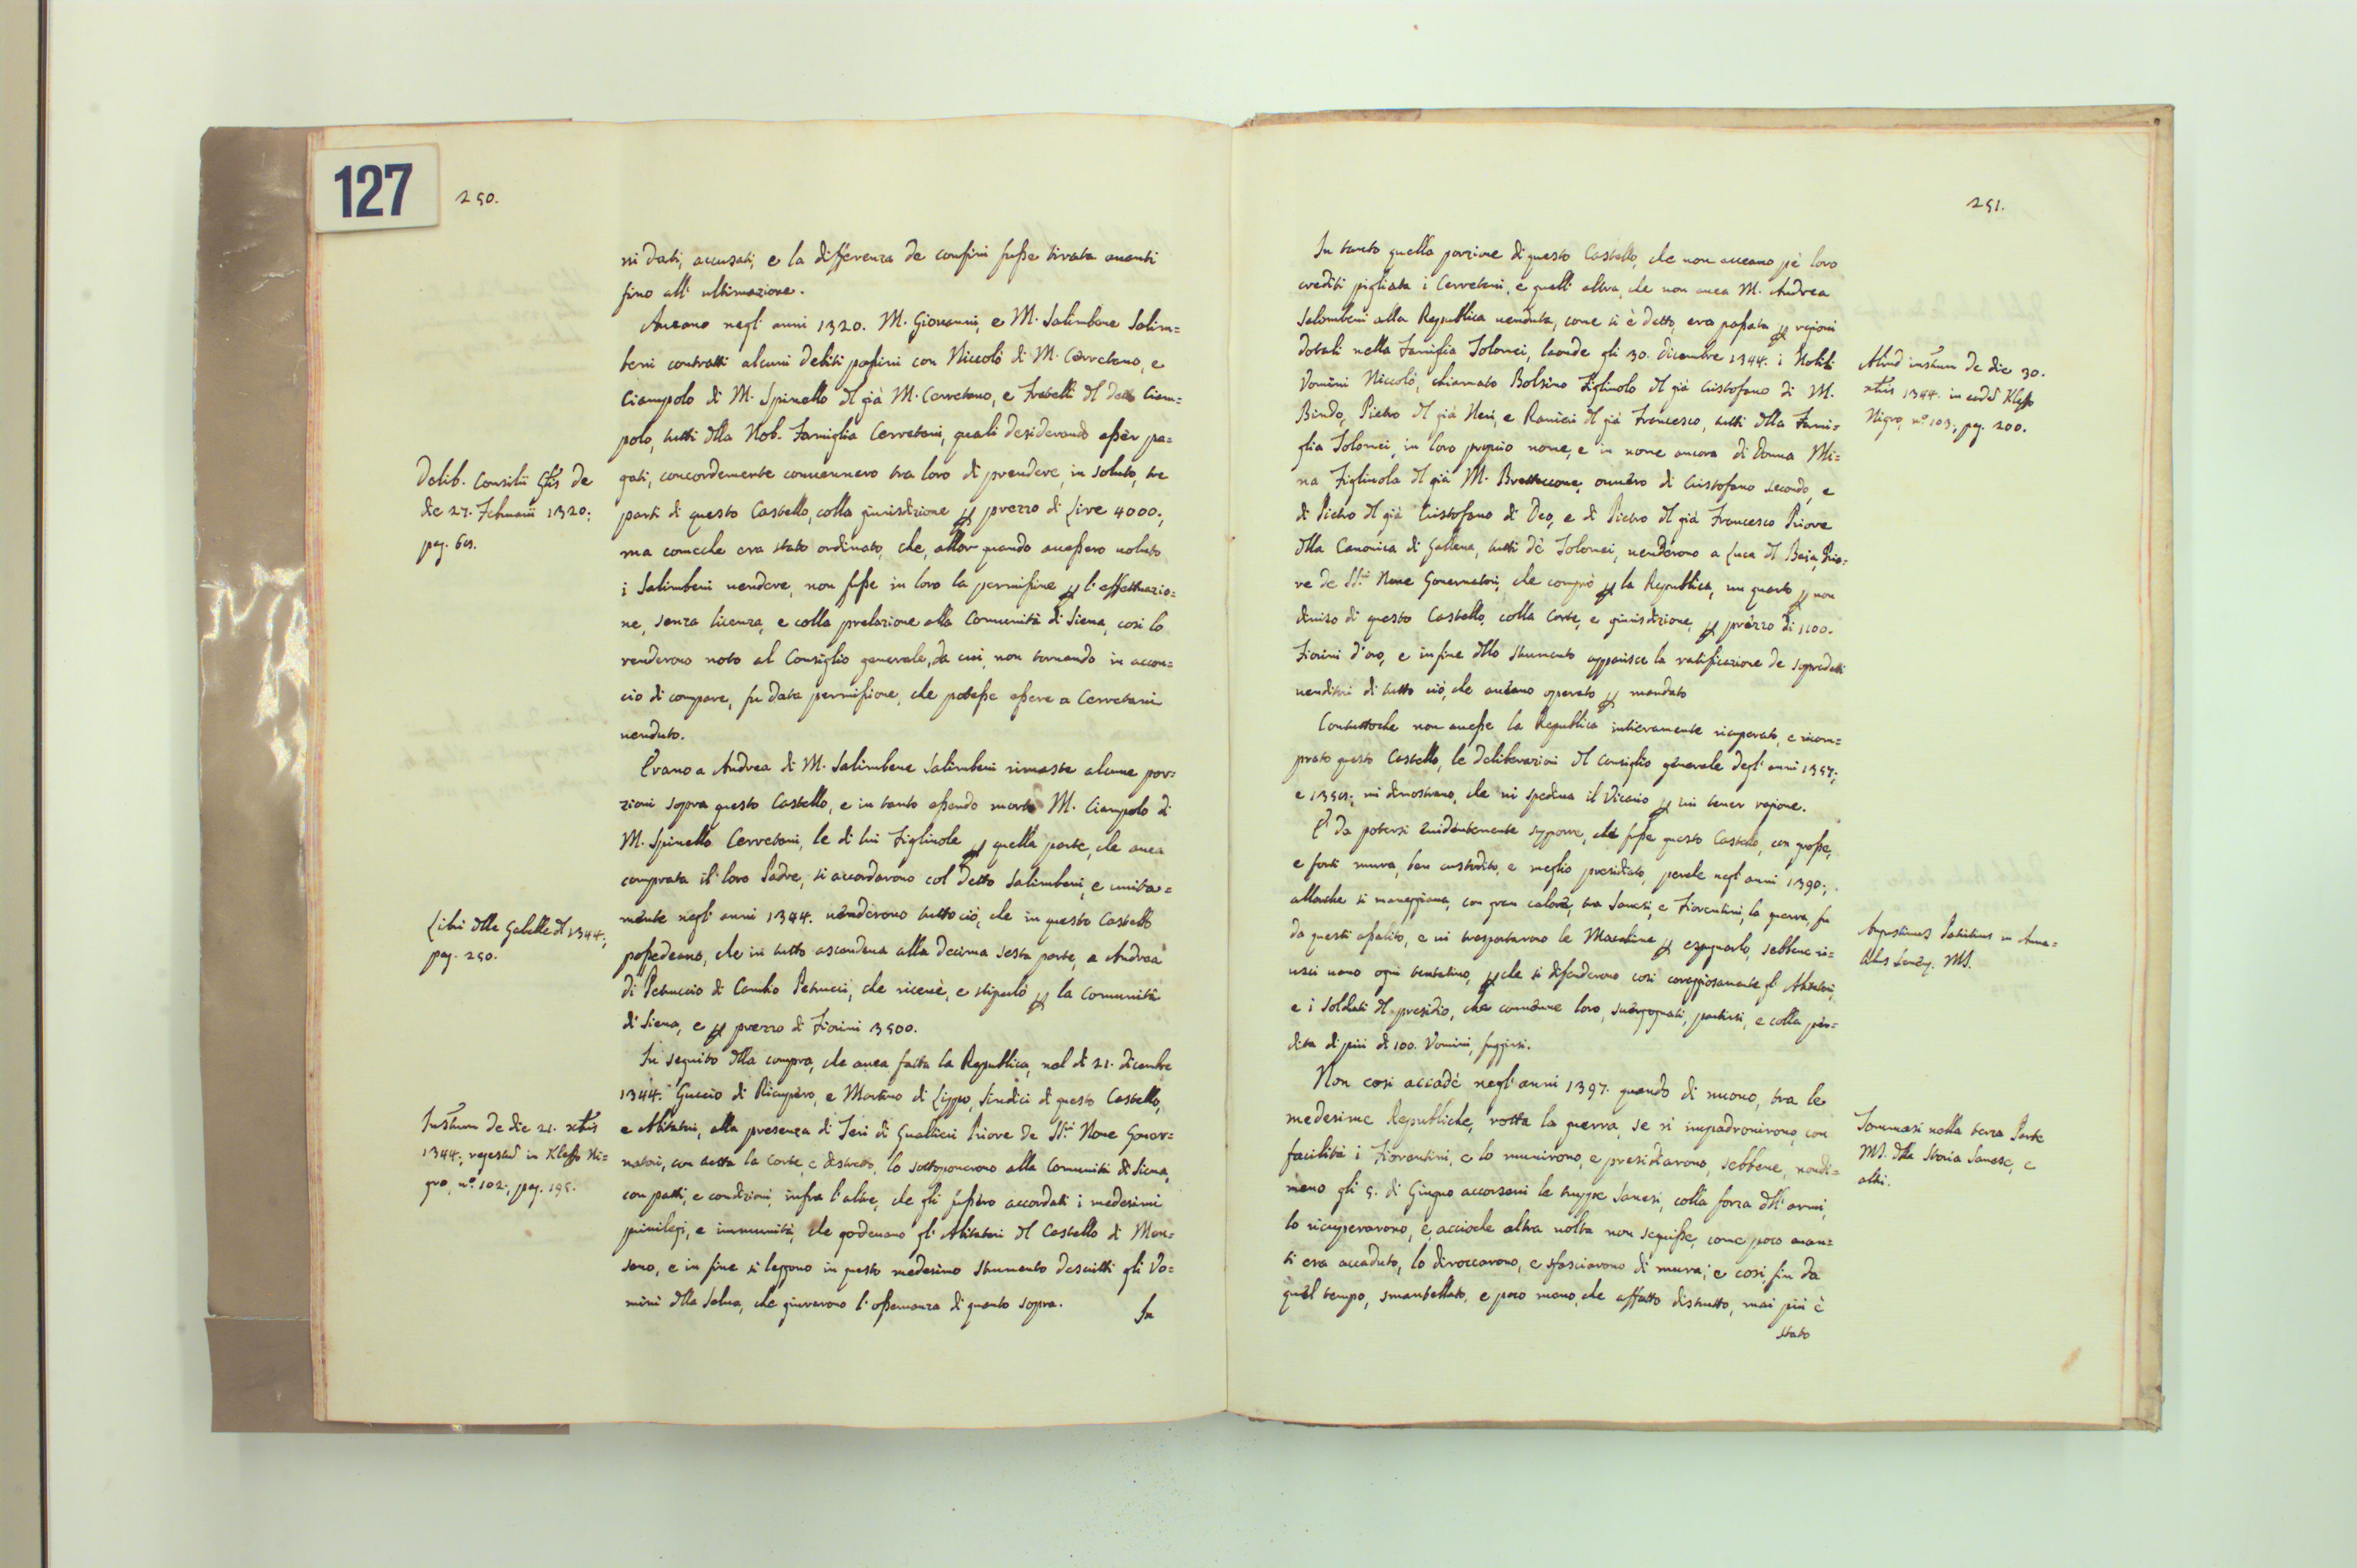 127
250.
ni dati, accusati, e la differenza de confini fusse tirata auanti
fino all' ultimazione.
Aueano negl' anni 1320. M. Giouanni, e M. Salimbene Salim=
beni contratti alcuni debiti passiui con Niccolò di M. Cerretano, e
Ciampolo di M. Spinello dl già M. Cerretano, e Fratelli dl detto Ciam=
polo, tutti dlla Nob. Famiglia Cerretani, quali desiderando esser pa=
gati, concordemente conuennero tra loro di prendere, in soluto, tre
parti di questo Castello, colla giurisdizione p prezzo di Lire 4000.,
ma comeche era stato ordinato, che, allor quando auessero uoluto
i Salimbeni uendere, non fusse in loro la permissione p l' effettuazio=
ne, senza licenza, e colla prelazione alla Comunità di Siena, così lo
renderono noto al Consiglio generale, da cui, non tornando in accon=
cio di comprare, fu data permissione, che potesse essere a Cerretani
uenduto.
Delib. Consilii Glis de
die 27. Februarii 1320.,
pag. 69.
Erano a Andrea di M. Salimbene Salimbeni rimaste alcune por=
zioni sopra questo Castello, e in tanto essendo morto M. Ciampolo di
M. Spinello Cerretani, le di lui Figliuole p quella parte, che auea
comprata il loro Padre, si accordarono col detto Salimbeni, e unita=
mente negl' anni 1344. uenderono tutto ciò, che in questo Castello
possedeano, che in tutto ascendeua alla decima sesta parte, a Andrea
di Petruccio di Cambio Petrucci, che riceuè, e stipulò p la Comunità
di Siena, e p prezzo di Fiorini 3500.
Libri dlle Gabelle dl 1344.,
pag. 250.
In seguito dlla compra, che auea fatta la Republica, nel dì 21. dicembre
1344. Guccio di Ricupero, e Martino di Lippo, Sindici di questo Castello,
e Abitatori, alla presenza di Ieri di Gualtieri Priore de SS.ri Noue Gouer=
natori, con tutta la Corte, e distretto, lo sottoponerono alla Comunità di Siena,
con patti, e condizioni, infra l' altre, che gli fussero accordati i medesimi
priuilegi, e immunità, che godeuano gl' Abitatori dl Castello di Mon=
sano, e in fine si leggono in questo medesimo strumento descritti gli Uo=
mini dlla Selua, che giurarono l' osseruanza di quanto sopra.
In
Instrum de die 21. xbris
1344., regestū in Kleffo Ni=
gro, n.° 102., pag. 195.
251.
In tanto quella porzione di questo Castello, che non aueano pè loro
crediti pigliata i Cerretani, e quell' altra, che non auea M. Andrea
Salimbeni alla Republica uenduta, come si è detto, era passata p ragioni
dotali nella Famiglia Tolomei, laonde gli 30. dicembre 1344. i Nobili
Uomini Niccolò, chiamato Bolsino Figliuolo dl già Cristofano di M.
Bindo, Pietro dl già Neri, e Ranieri dl già Francesco, tutti dlla Fami=
glia Tolomei, in loro proprio nome, e in nome ancora di Donna Mi=
na Figliuola dl già M. Brettacone, ouuero di Cristofano secondo, e
di Pietro dl già Cristofano di Deo, e di Pietro dl già Francesco Priore
dlla Canonica di Gallena, tutti dè Tolomei, uenderono a Luca dl Baja, Prio=
re de SS.ri Noue Gouernatori, che comprò p la Republica, un quarto p non
diuiso di questo Castello, colla Corte, e giurisdizione, p prezzo di 1100.
Fiorini d' oro, e in fine dllo strumento apparisce la ratificazione de sopradetti
uenditori di tutto ciò, che aueano operato p mandato
Aliud instrum de die 30.
xbris 1344. in eodē Kleffo
Nigro, n.° 103., pag. 200.
Contuttoche non auesse la Republica intieramente ricuperato, e ricom=
prato questo Castello, le deliberazioni dl Consiglio generale degl' anni 1357.,
e 1359., mi dimostrano, che ui spediua il Vicario p iui tener ragione.
E' da potersi euidentemente supporre, che fusse questo Castello, con grosse,
e forti mura, ben custodito, e meglio presidiato, perche negl' anni 1390.,
allorche si maneggiaua, con gran calore, tra Sanesi, e Fiorentini, la guerra, fu
da questi assalito, e ui trasportarono le Macchine p espugnarlo, sebbene ri=
uscì uano ogni tentatiuo, p che si difenderono così coraggiosamente gl' Abitatori,
e i Soldati dl presidio, che conuenne loro, suergognati, partirsi, e colla per=
dita di più di 100. Uomini, fuggirsi.
Augustinus Patritius in Anna=
libus Senēs. MS.
Non così accadè negl' anni 1397. quando di nuouo, tra le
medesime Republiche, rotta la guerra, se ne impadronirono, con
facilità i Fiorentini, e lo munirono, e presidiarono, sebbene, nondi=
meno gli 5. di Giugno accorseui le truppe Sanesi, colla forza dll' armi,
lo ricuperarono, e, acciòche altra uolta non seguisse, come poco auan=
ti era accaduto, lo diroccarono, e sfasciarono di mura, e così, fin da
quel tempo, smantellato, e poco meno, che affatto distrutto, mai più è
stato
Tommasi nella terza Parte
MS. dlla Storia Sanese, e
altri.